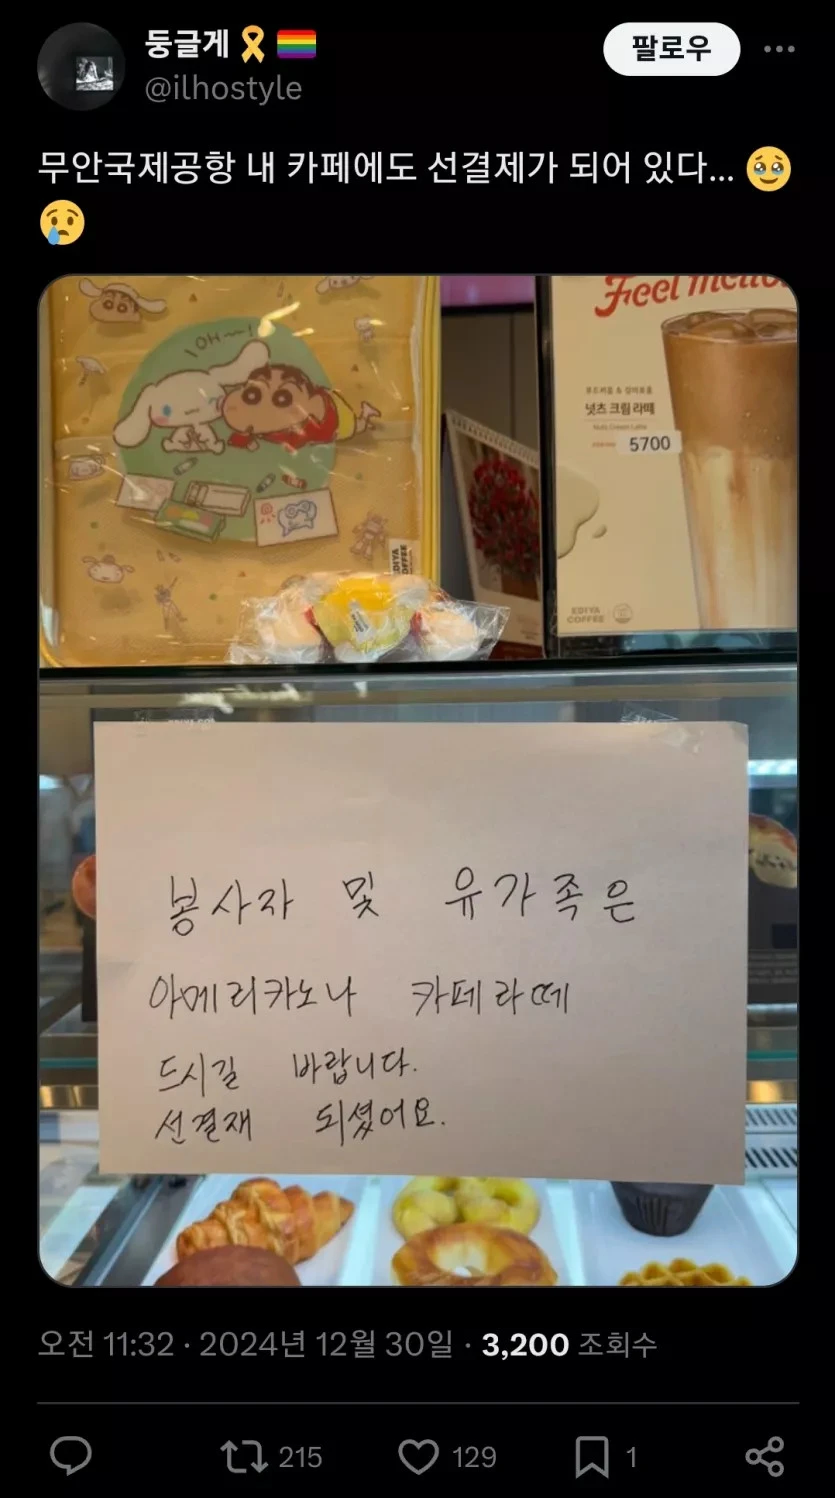 둥글게
팔로우
@ilhostyle
무안국제공항 내 카페에도 선결제가 되어 있다...
아~!
EDIYA
COFFEE
넛츠 크림 라떼
Nuts Cream Latte
5700
EDIYA
COFFEE
봉사자 및 유가족은
아메리카노나 카페라떼
드시길 바랍니다.
선결재 되셨어요.
오전 11:32 · 2024년 12월 30일 · 3,200 조회수
215
129
1